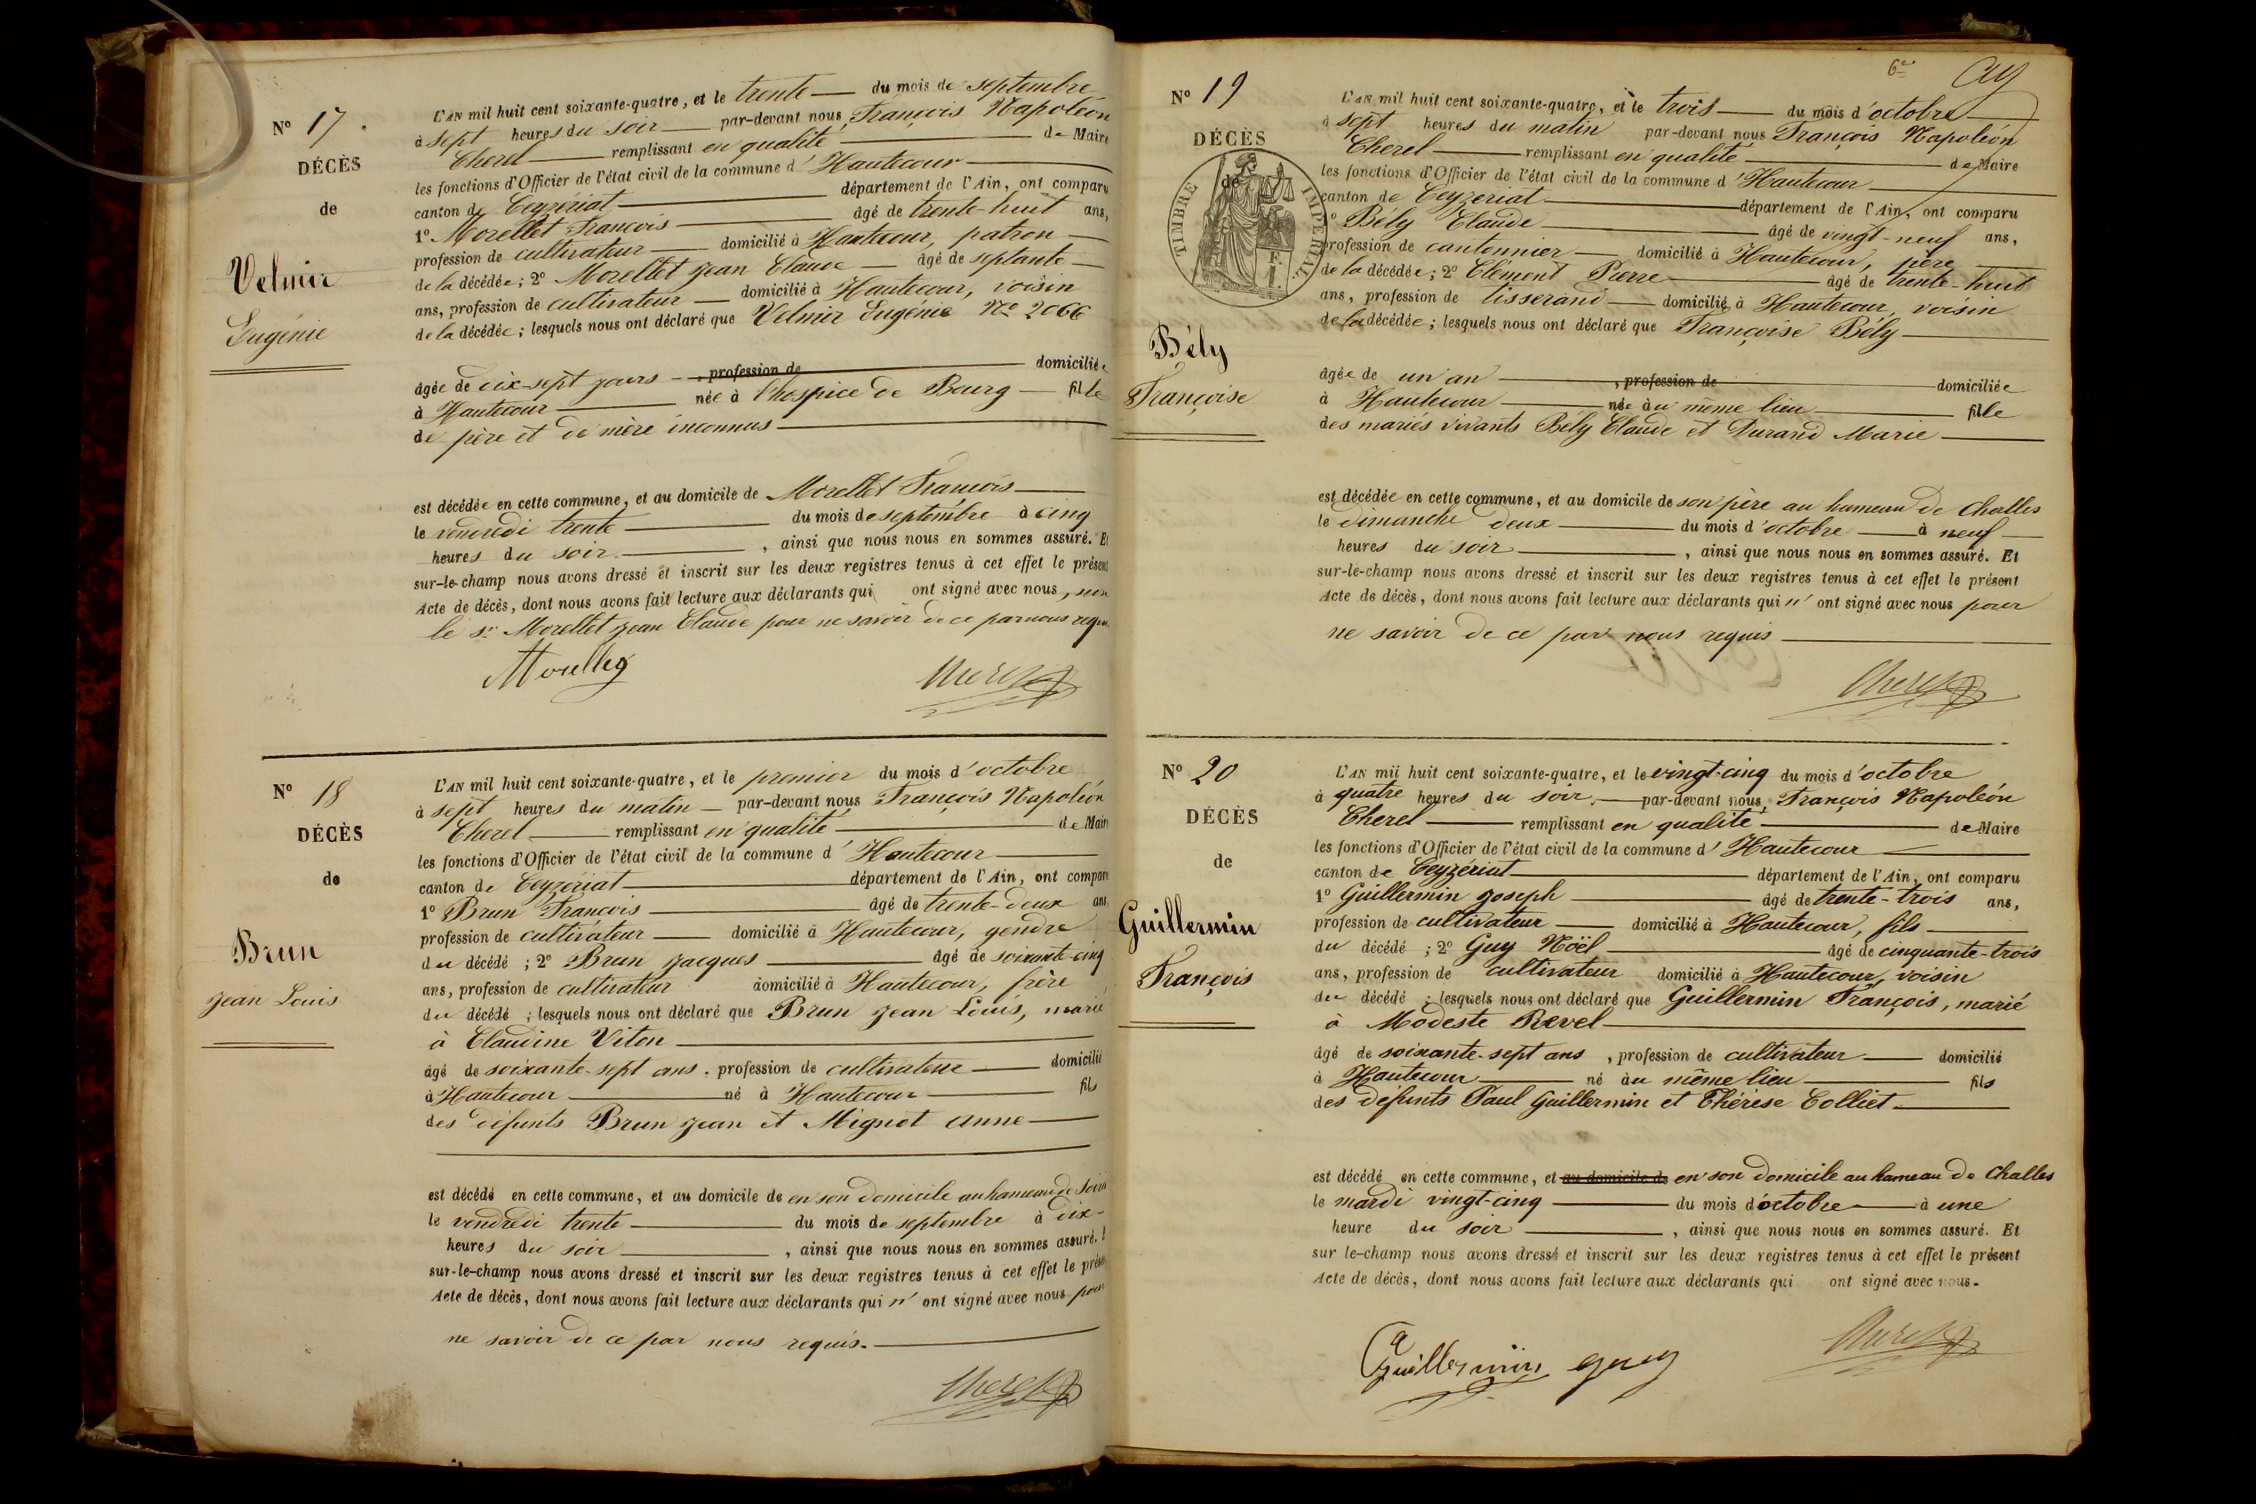 N° 17.
DÉCÈS
de
Velmir
Eugénie
L'AN mil huit cent soixante-quatre, et le trente du mois de septembre
à sept heures du soir par-devant nous, François Napoléon
Cherel remplissant en qualité de Maire
les fonctions d'Officier de l'état civil de la commune d'Hautecour
canton de Ceyzériat département de l'Ain, ont comparu
1° Morellet François âgé de trente-huit ans,
profession de cultivateur domicilié à Hautecour, patron
de la décédée; 2° Morellet Jean Claude âgé de septante
ans, profession de cultivateur domicilié à Hautecour, voisin
de la décédée; lesquels nous ont déclaré que Velmir Eugénie N° 2066
âgée de dix-sept jours, profession de domiciliée
à Hautecour née à l'hospice de Bourg fille
de père et de mère inconnus
est décédée en cette commune, et au domicile de Morellet François
le vendredi trente du mois de septembre à cinq
heures du soir, ainsi que nous nous en sommes assuré. Et
sur-le-champ nous avons dressé et inscrit sur les deux registres tenus à cet effet le présent
Acte de décès, dont nous avons fait lecture aux déclarants qui ont signé avec nous, non
le sr Morellet Jean Claude pour ne savoir de ce par nous requis
Cherel
N° 18
DÉCÈS
de
Brun
Jean Louis
L'AN mil huit cent soixante-quatre, et le premier du mois d'octobre
à sept heures du matin par-devant nous François Napoléon
Cherel remplissant en qualité de Maire
les fonctions d'Officier de l'état civil de la commune d'Hautecour
canton de Ceyzériat département de l'Ain, ont comparu
1° Brun François âgé de trente-deux ans,
profession de cultivateur domicilié à Hautecour, gendre
du décédé; 2° Brun Jacques âgé de soixante-cinq
ans, profession de cultivateur domicilié à Hautecour, frère
du décédé; lesquels nous ont déclaré que Brun Jean Louis, marié
à Claudine Viton
âgé de soixante-sept ans, profession de cultivateur domicilié
à Hautecour né à Hautecour fils
des défunts Brun Jean et Mignot Anne
est décédé en cette commune, et au domicile de en son domicile au hameau de
le vendredi trente du mois de septembre à dix
heures du soir, ainsi que nous nous en sommes assuré.
sur-le-champ nous avons dressé et inscrit sur les deux registres tenus à cet effet le présent
Acte de décès, dont nous avons fait lecture aux déclarants qui n'ont signé avec nous pour
ne savoir de ce par nous requis.
Cherel
6e
N° 19
DÉCÈS
de
TIMBRE IMPÉRIAL
Bély
Françoise
L'AN mil huit cent soixante-quatre, et le trois du mois d'octobre
à sept heures du matin par-devant nous François Napoléon
Cherel remplissant en qualité de Maire
les fonctions d'Officier de l'état civil de la commune d'Hautecour
canton de Ceyzériat département de l'Ain, ont comparu
1° Bély Claude âgé de vingt-neuf ans,
profession de cantonnier domicilié à Hautecour, père
de la décédée; 2° Clément Pierre âgé de trente-huit
ans, profession de tisserand domicilié à Hautecour, voisin
de la décédée; lesquels nous ont déclaré que Françoise Bély
âgée de un an, profession de domiciliée
à Hautecour née au même lieu fille
des mariés vivants Bély Claude et Durand Marie
est décédée en cette commune, et au domicile de son père au hameau de Challes
le dimanche deux du mois d'octobre à neuf
heures du soir, ainsi que nous nous en sommes assuré. Et
sur-le-champ nous avons dressé et inscrit sur les deux registres tenus à cet effet le présent
Acte de décès, dont nous avons fait lecture aux déclarants qui n'ont signé avec nous pour
ne savoir de ce par nous requis
Cherel
N° 20
DÉCÈS
de
Guillermin
François
L'AN mil huit cent soixante-quatre, et le vingt-cinq du mois d'octobre
à quatre heures du soir par-devant nous, François Napoléon
Cherel remplissant en qualité de Maire
les fonctions d'Officier de l'état civil de la commune d'Hautecour
canton de Ceyzériat département de l'Ain, ont comparu
1° Guillermin Joseph âgé de trente-trois ans,
profession de cultivateur domicilié à Hautecour, fils
du décédé; 2° Guy Noël âgé de cinquante-trois
ans, profession de cultivateur domicilié à Hautecour, voisin
du décédé; lesquels nous ont déclaré que Guillermin François, marié
à Modeste Revel
âgé de soixante-sept ans, profession de cultivateur domicilié
à Hautecour né au même lieu fils
des défunts Paul Guillermin et Thérèse Colliet
est décédé en cette commune, et au domicile de en son domicile au hameau de Challes
le mardi vingt-cinq du mois d'octobre à une
heure du soir, ainsi que nous nous en sommes assuré. Et
sur le-champ nous avons dressé et inscrit sur les deux registres tenus à cet effet le présent
Acte de décès, dont nous avons fait lecture aux déclarants qui ont signé avec nous.
Guillermin guy Cherel